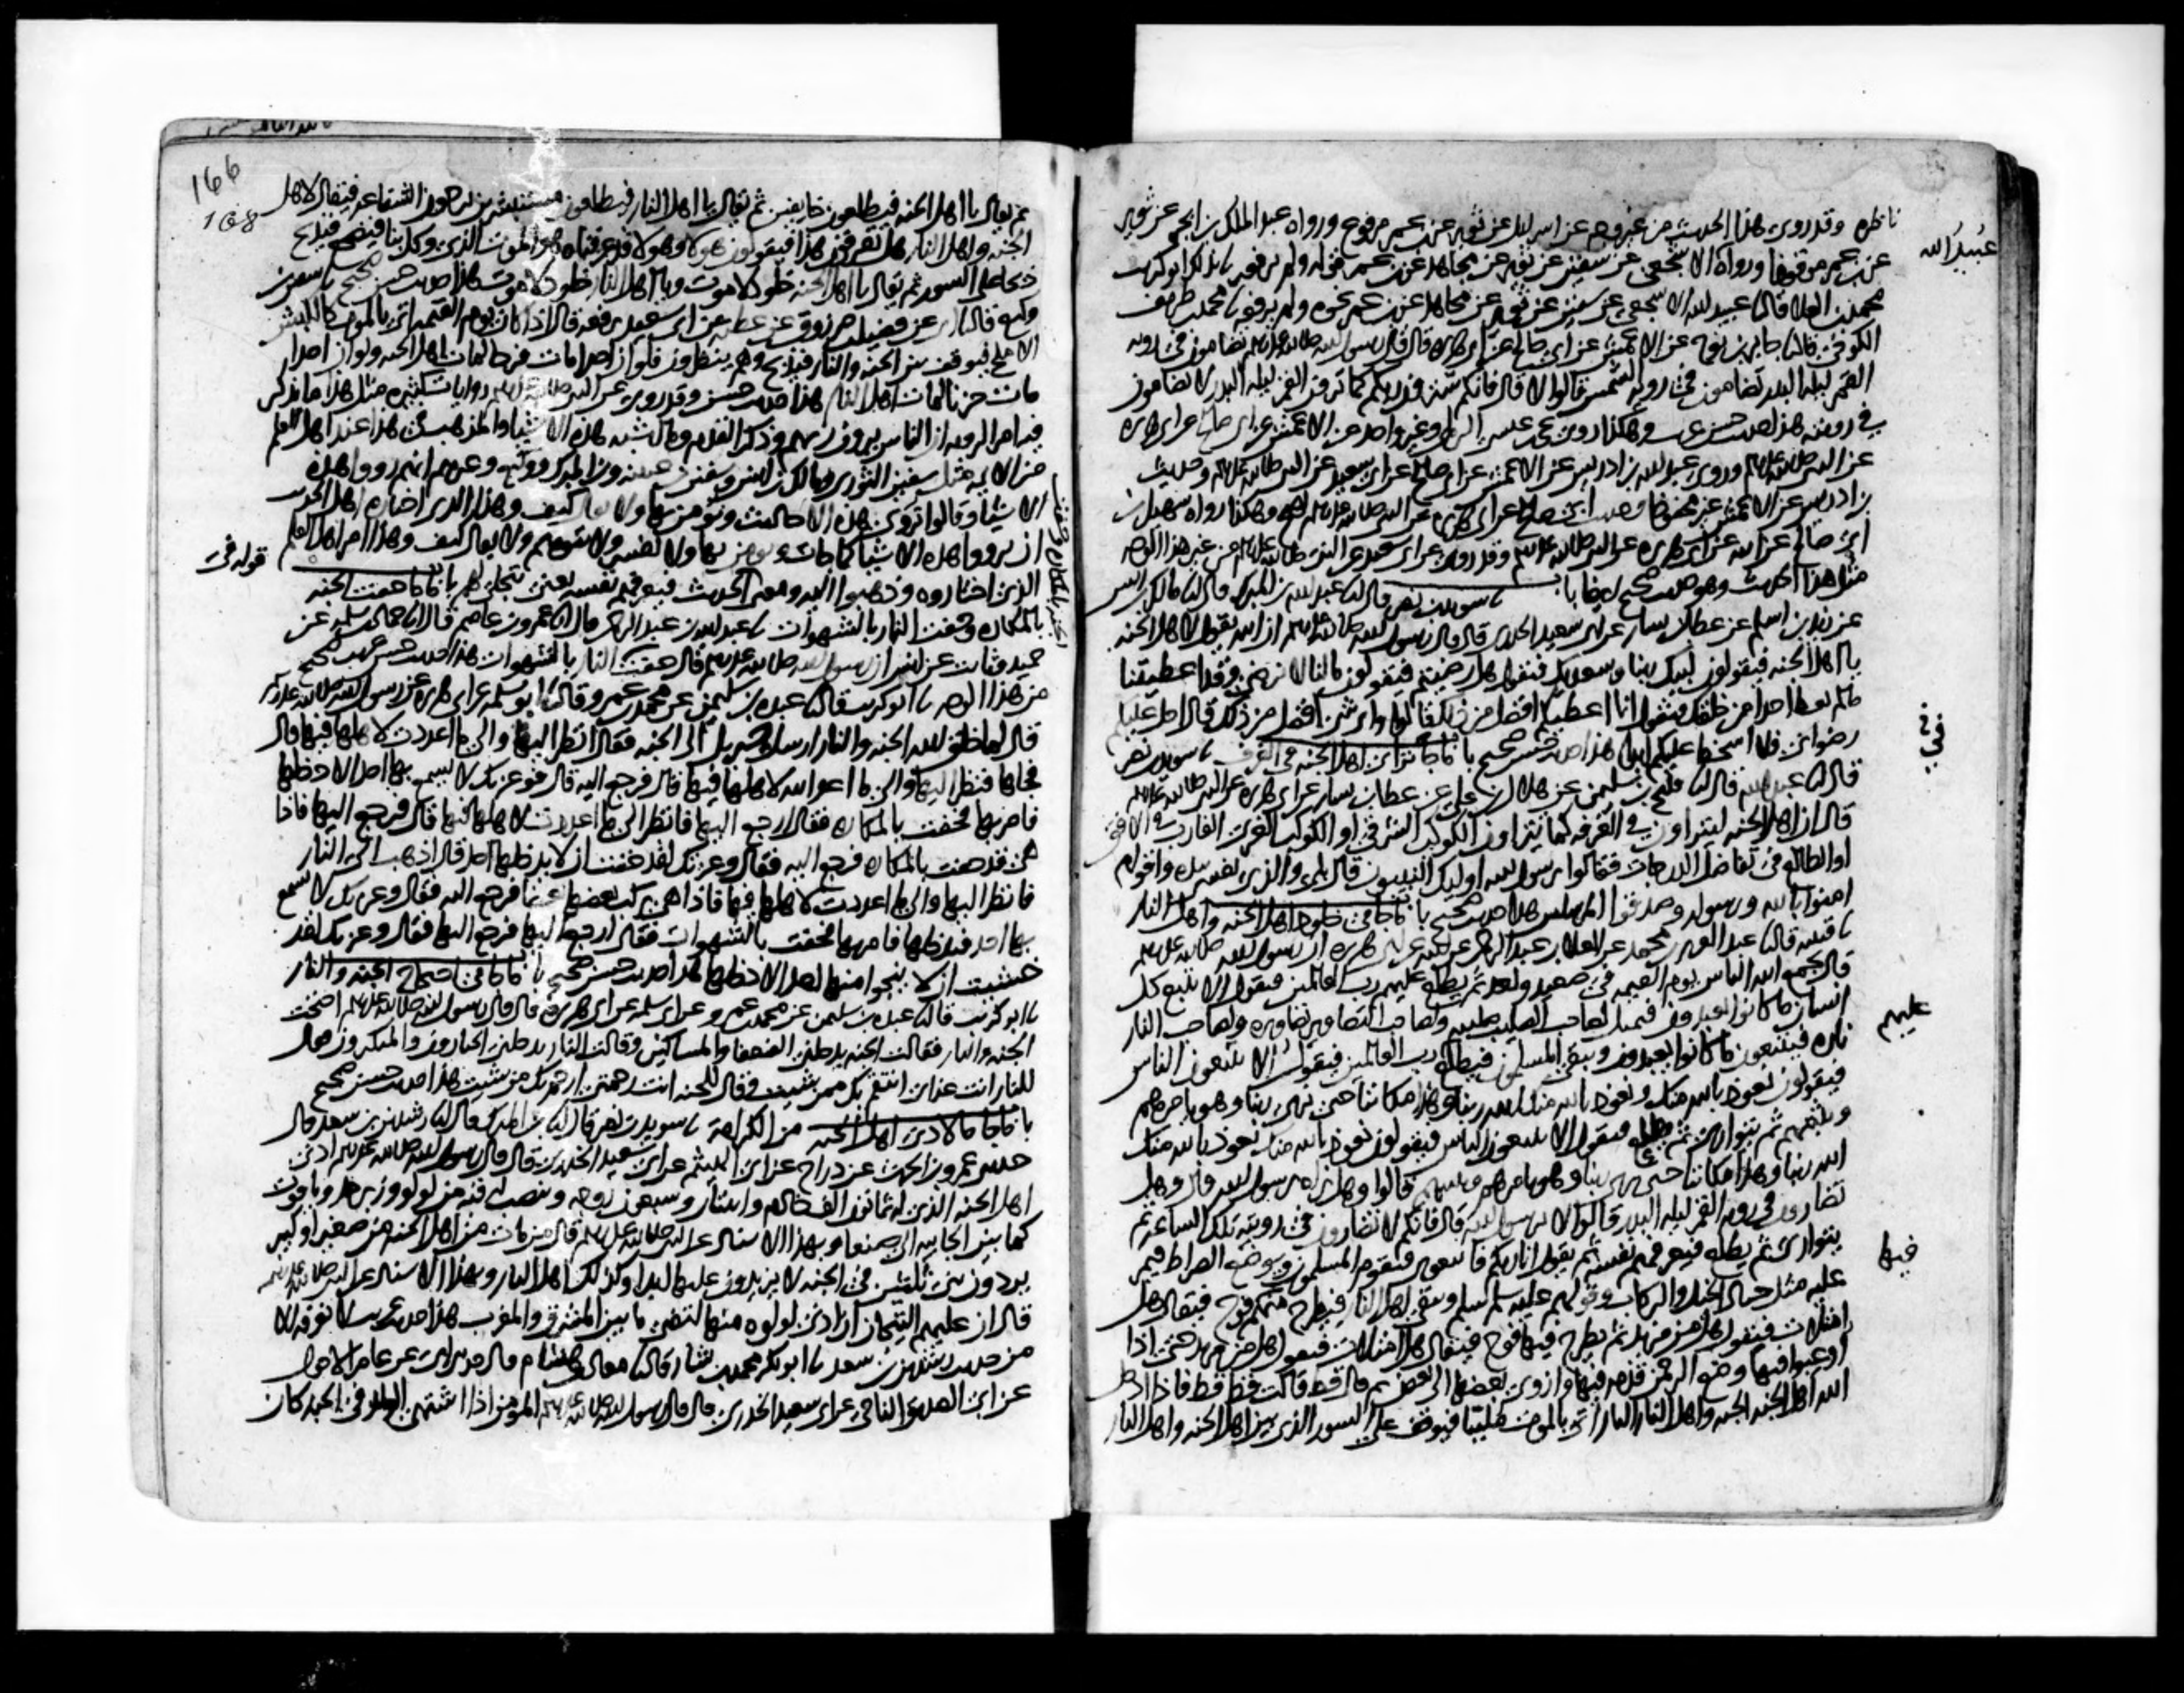 ناظره وقد روى هذا الحديث من غير وجه عن اسرايل عن ثوير عن ابن عمر مرفوع ورواه عبد الملك بن ابجر عن ثوير
عن ابن عمر موقوفا ورواه الاشجعي عن سفين عن ثوير عن مجاهد عن ابن عمر قوله ولم يرفعه نا بذلك ابو كريب
محمد بن العلا قال نا عبيد الله الاشجعي عن سفين عن ثوير عن مجاهد عن ابن عمر نحوه ولم يرفعه نا محمد بن طريف
الكوفي قال نا جابر بن نوح عن الاعمش عن ابي صالح عن ابي هريره قال قال رسول الله صلى الله عليه وسلم تضامون في رويه
القمر ليله البدر تضامون في رويه الشمس قالوا لا قال فانكم سترون ربكم كما ترون القمر ليله البدر لا تضامون
في رويته هذا حديث حسن غريب وهكذا روى يحيى بن عيسى الرملي وغير واحد عن الاعمش عن ابي صالح عن ابي هريره
عن النبي صلى الله عليه وسلم وروى عبد الله بن ادريس عن الاعمش عن ابي صالح عن ابي سعيد عن النبي صلى الله عليه وسلم وحديث
بن ادريس عن الاعمش غير محفوظ وحديث ابي صالح عن ابي هريره عن النبي صلى الله عليه وسلم اصح وهكذا رواه سهيل بن
ابي صالح عن ابيه عن ابي هريره عن النبي صلى الله عليه وسلم وقد روى عن ابي سعيد عن النبي صلى الله عليه وسلم من غير هذا الوجه
مثل هذا الحديث وهو حديث صحيح ايضا باب نا سويد بن نصر قال نا عبد الله بن المبارك قال نا مالك بن انس
عن زيد بن اسلم عن عطا بن يسار عن ابي سعيد الخدري قال قال رسول الله صلى الله عليه وسلم ان الله يقول لاهل الجنه
يا اهل الجنه فيقولون لبيك ربنا وسعديك فيقول هل رضيتم فيقولون ما لنا لا نرضى وقد اعطيتنا
ما لم تعط احدا من خلقك فيقول انا اعطيكم افضل من ذلك قالوا واي شي افضل من ذلك قال احل عليكم
رضواني فلا اسخط عليكم ابدا هذا حديث حسن صحيح باب ما جا في ترائي اهل الجنه في الغرف نا سويد بن نصر
قال نا عبد الله قال نا فليح بن سليمن عن هلال بن علي عن عطا بن يسار عن ابي هريره عن النبي صلى الله عليه وسلم
قال ان اهل الجنه ليتراون في الغرفه كما يتراون الكوكب الشرقي او الكوكب الغربي الغارب في الافق
او الطالع في تفاضل الدرجات فقالوا يرسول الله اوليك النبيون قال بلى والذي نفسي بيده واقوام
امنوا بالله ورسوله وصدقوا المرسلين هذا حديث صحيح باب ما جا في خلود اهل الجنه واهل النار
نا قتيبه قال نا عبد العزيز بن محمد عن العلا بن عبد الرحمن عن ابيه عن ابي هريره ان رسول الله صلى الله عليه وسلم
قال يجمع الله الناس يوم القيمه في صعيد واحد ثم يطلع عليهم رب العالمين فيقول الا يتبع كل
انسان ما كانوا يعبدون فيمثل لصاحب الصليب صليبه ولصاحب التصاوير تصاويره ولصاحب النار
ناره فيتبعون ما كانوا يعبدون ويبقى المسلمون فيطلع رب العالمين فيقول الا تتبعون الناس
فيقولون نعوذ بالله منك ونعوذ بالله منك الله ربنا وهذا مكاننا حتى نرى ربنا وهو يامرهم
ويثبتهم ثم يتوارى ثم يطلع فيقول الا تتبعون الناس فيقولون نعوذ بالله منك نعوذ بالله منك
الله ربنا وهذا مكاننا حتى نرى ربنا وهو يامرهم ويثبتهم قالوا وهل نراه يرسول الله قال وهل
تضارون في رويه القمر ليله البدر قالوا لا يرسول الله قال فانكم لا تضارون في رويته تلك الساعه ثم
يتوارى ثم يطلع فيعرفهم نفسه ثم يقول انا ربكم فاتبعوني فيقوم المسلمون ويوضع الصراط فيمر
عليه مثل جياد الخيل والركاب وقولهم عليه سلم سلم ويبقى اهل النار فيطرح منهم فوج فيقال هل
امتلات فتقول هل من مزيد ثم يطرح فيها فوج فيقال هل امتلات فتقول هل من مزيد حتى اذا
اوعبوا فيها وضع الرحمن قدمه فيها وازوى بعضها الى بعض ثم قال قط قالت قط قط فاذا ادخل
الله اهل الجنه الجنه واهل النار النار اتي بالموت ملببا فيوقف على السور الذي بين اهل الجنه واهل النار
عبيد الله
في
عليهم
فيها
166
168
ثم يقال يا اهل الجنه فيطلعون خايفين ثم يقال يا اهل النار فيطلعون مستبشرين يرجون الشفاعه فيقال لاهل
الجنه واهل النار هل تعرفون هذا فيقولون هولا وهولا قد عرفناه هو الموت الذي وكل بنا فيضجع فيذبح
ذبحا على السور ثم يقال يا اهل الجنه خلود لا موت ويا اهل النار خلود لا موت هذا حديث حسن صحيح نا سفين بن
وكيع قال نا ابي عن فضيل بن مرزوق عن عطيه عن ابي سعيد يرفعه قال اذا كان يوم القيمه اتي بالموت كالكبش
الاملح فيوقف بين الجنه والنار فيذبح وهم ينظرون فلو ان احدا مات فرحا لمات اهل الجنه ولو ان احدا
مات حزنا لمات اهل النار هذا حديث حسن وقد روى عن النبي صلى الله عليه وسلم روايات كثيره مثل هذا ما يذكر
فيه امر الرويه ان الناس يرون ربهم وذكر القدم وما اشبه هذه الاشيا والمذهب في هذا عند اهل العلم
من الايمه مثل سفين الثوري ومالك بن انس وسفين بن عيينه وبن المبارك ووكيع وغيرهم انهم رووا هذه
الاشيا وقالوا تروى هذه الاحاديث ونومن بها ولا يقال كيف وهذا الذي اختاره اهل الحديث
ان يرووا هذه الاشيا كما جات ويومن بها ولا تفسر ولا تتوهم ولا يقال كيف وهذا امر اهل العلم
الذي اختاروه وذهبوا اليه ومعنى الحديث فيعرفهم نفسه يعني يتجلى لهم باب ما جا حفت الجنه
بالمكاره وحفت النار بالشهوات نا عبد الله بن عبد الرحمن قال نا عمرو بن عاصم قال نا حماد بن سلمه عن
حميد وثابت عن انس ان رسول الله صلى الله عليه وسلم قال حفت النار بالشهوات هذا حديث حسن غريب صحيح
من هذا الوجه نا ابو كريب قال نا عبده بن سليمن عن محمد بن عمرو قال نا ابو سلمه عن ابي هريره عن رسول الله صلى الله عليه وسلم
قال لما خلق الله الجنه والنار ارسل جبريل الى الجنه فقال انظر اليها والى ما اعددت لاهلها فيها قال
فجاها فنظر اليها والى ما اعد الله لاهلها فيها قال فرجع اليه قال فوعزتك لا يسمع بها احد الا دخلها
فامر بها فحفت بالمكاره فقال ارجع اليها فانظر الى ما اعددت لاهلها فيها قال فرجع اليها فاذا
هي قد حفت بالمكاره فرجع اليه فقال وعزتك لقد خفت ان لا يدخلها احد قال اذهب الى النار
فانظر اليها والى ما اعددت لاهلها فيها فاذا هي يركب بعضها بعضا فرجع اليه فقال وعزتك لا يسمع
بها احد فيدخلها فامر بها فحفت بالشهوات فقال ارجع اليها فرجع اليها فقال وعزتك لقد
خشيت ان لا ينجو منها احد الا دخلها هذا حديث حسن صحيح باب ما جا في احتجاج الجنه والنار
نا ابو كريب قال نا عبده بن سليمن عن محمد بن عمرو عن ابي سلمه عن ابي هريره قال قال رسول الله صلى الله عليه وسلم احتجت
الجنه والنار فقالت الجنه يدخلني الضعفا والمساكين وقالت النار يدخلني الجبارون والمتكبرون فقال
للنار انت عذابي انتقم بك ممن شيت وقال للجنه انت رحمتي ارحم بك من شيت هذا حديث حسن صحيح
باب ما جا ما لادنى اهل الجنه من الكرامه نا سويد بن نصر قال نا بن المبارك قال نا رشدين بن سعد قال
حدثني عمرو بن الحرث عن دراج عن ابي الهيثم عن ابي سعيد الخدري قال قال رسول الله صلى الله عليه وسلم ادنى
اهل الجنه الذي له ثمانون الف خادم واثنتان وسبعون زوجه وتنصب له قبه من لولو وزبرجد وياقوت
كما بين الجابيه الى صنعا وبهذا الاسناد عن النبي صلى الله عليه وسلم قال من مات من اهل الجنه من صغير او كبير
يردون بني ثلثين في الجنه لا يزيدون عليها ابدا وكذلك اهل النار وبهذا الاسناد عن النبي صلى الله عليه وسلم
قال ان عليهم التيجان ان ادنى لولوه منها لتضي ما بين المشرق والمغرب هذا حديث غريب لا نعرفه الا
من حديث رشدين بن سعد نا ابو بكر محمد بن بشار قال نا معاذ بن هشام قال حدثني ابي عن عامر الاحول
عن ابي الصديق الناجي عن ابي سعيد الخدري قال قال رسول الله صلى الله عليه وسلم المومن اذا اشتهى الولد في الجنه كان
قوله في